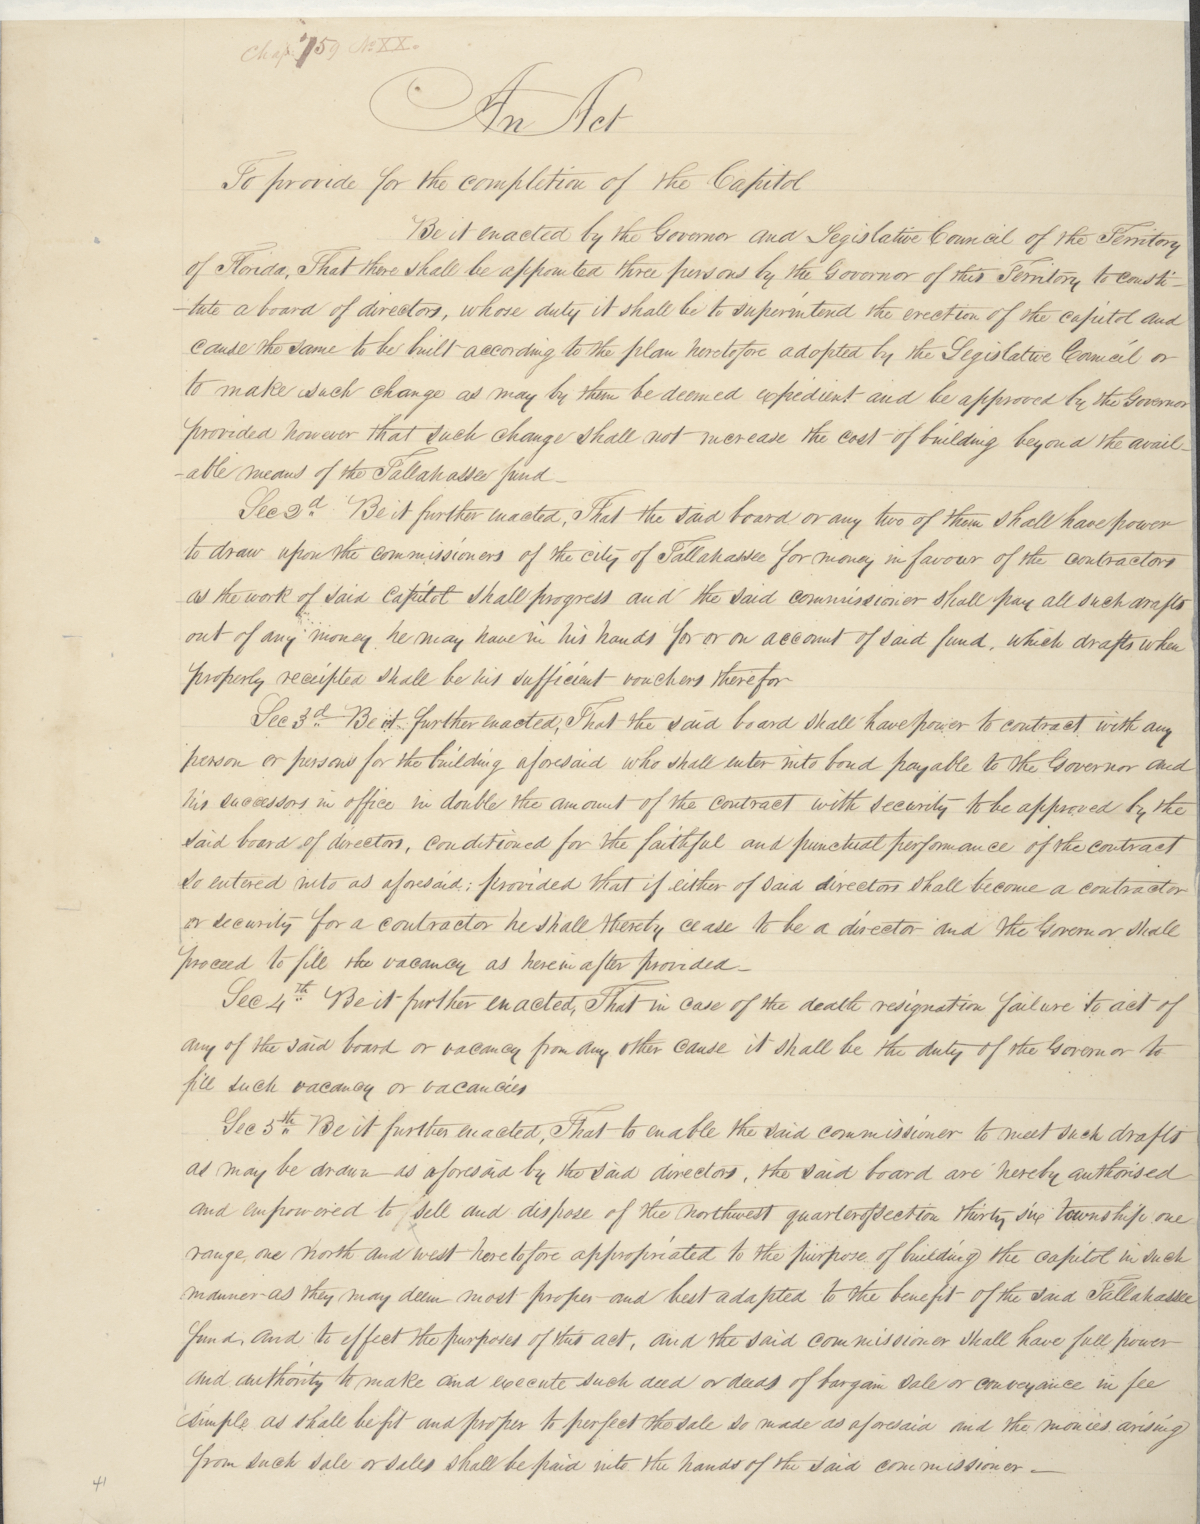 Chap. 759 No XX.
An Act
To provide for the completion of the Capitol
Be it enacted by the Governor and Legislative Council of the Territory
of Florida, That there shall be appointed three persons by the Governor of this Territory to consti-
-tute a board of directors, whose duty it shall be to superintend the erection of the capitol and
cause the same to be built according to the plan heretofore adopted by the Legislative Council or
to make such change as may by them be deemed expedient and be approved by the Governor
provided however that such change shall not increase the cost of building beyond the avail-
-able means of the Tallahassee fund_
Sec 2d. Be it further enacted, That the said board or any two of them shall have power
to draw upon the commissioners of the city of Tallahassee for money in favour of the contractors
as the work of said capitol shall progress and the said commissioner shall pay all such drafts
out of any money he may have in his hands for or on account of said fund, which drafts when
properly receipted shall be his sufficient vouchers therefor
Sec 3d. Be it further enacted, That the said board shall have power to contract with any
person or persons for the building aforesaid who shall enter into bond payable to the Governor and
his successors in office in double the amount of the contract with security to be approved by the
said board of directors, conditioned for the faithful and punctual performance of the contract
so entered into as aforesaid; provided that if either of said directors shall become a contractor
or security for a contractor he shall thereby cease to be a director and the Governor shall
proceed to fill the vacancy as herein after provided_
Sec 4th. Be it further enacted, That in case of the death resignation failure to act of
any of the said board or vacancy from any other cause it shall be the duty of the Governor to
fill such vacancy or vacancies
Sec 5th. Be it further enacted, That to enable the said commissioner to meet such drafts
as may be drawn as aforesaid by the said directors, the said board are hereby authorised
and empowered to sell and dispose of the northwest quarter of section thirty six township one
range one north and west heretofore appropriated to the purpose of building the capitol in such
manner as they may deem most proper and best adapted to the benefit of the said Tallahassee
fund, and to effect the purposes of this act, and the said commissioner shall have full power
and authority to make and execute such deed or deeds of bargain sale or conveyance in fee
simple as shall be fit and proper to perfect the sale so made as aforesaid and the monies arising
from such sale or sales shall be paid into the hands of the said commissioner_
41